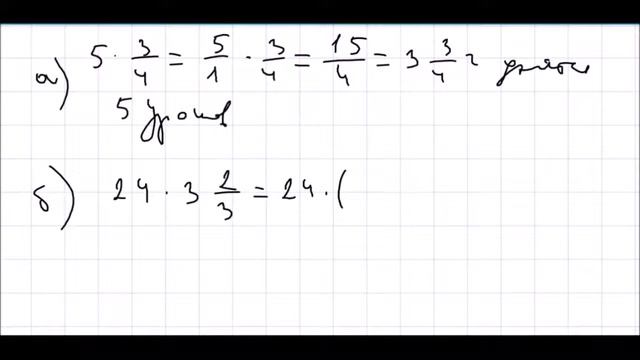 а) 5 · 3/4 = 5/1 · 3/4 = 15/4 = 3 3/4 ч длятся
5 уроков
б) 24 · 3 2/3 = 24 · (